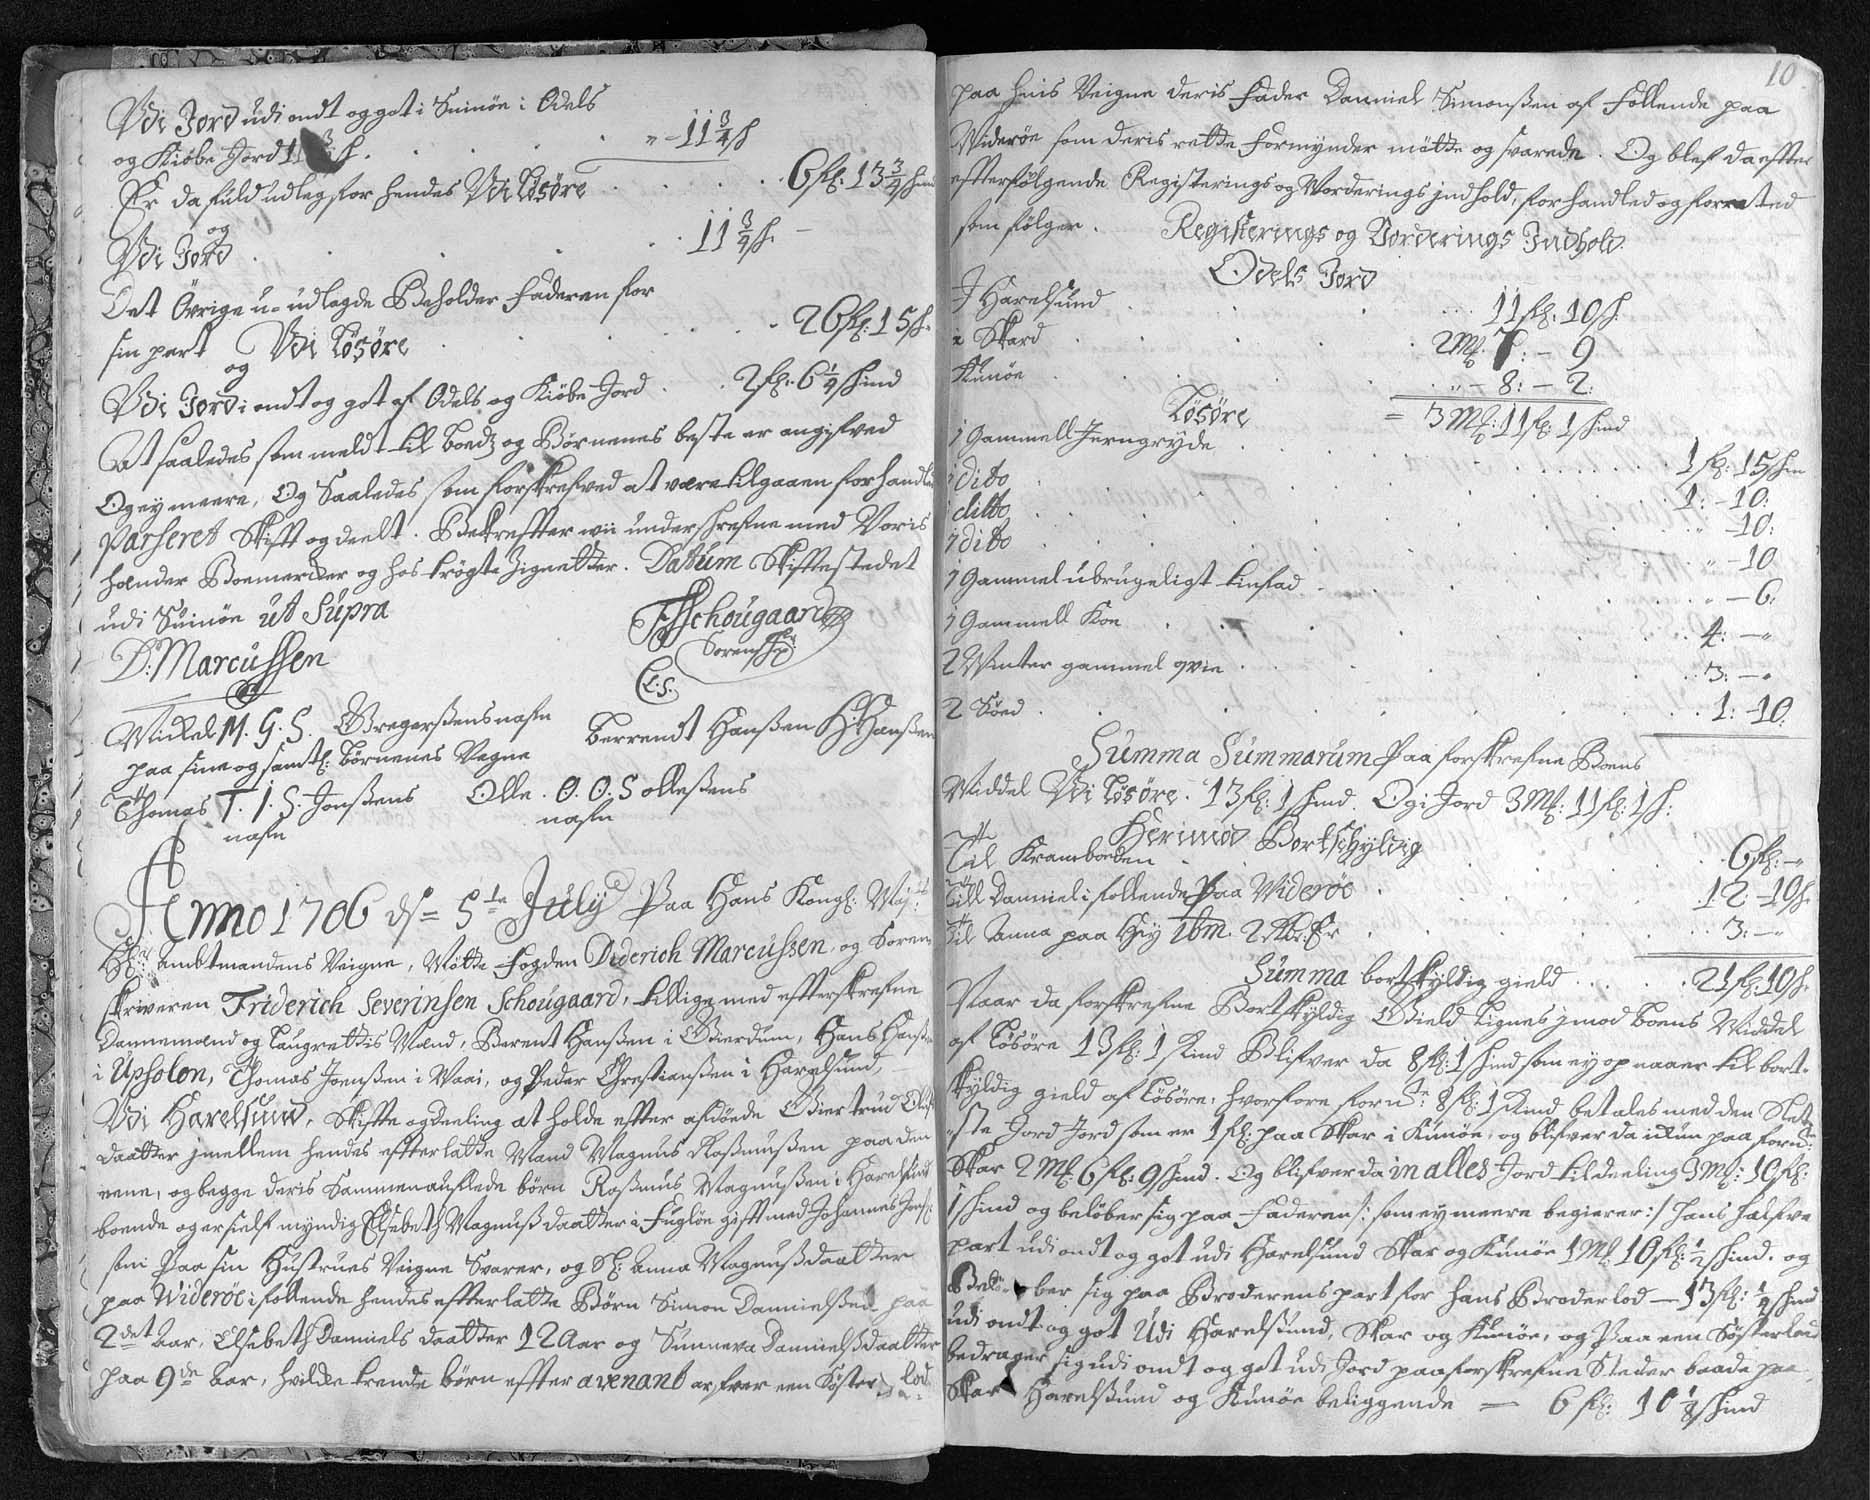 Udi Jord udi ondt og got i Suinöe i Odels
og Kiöbe Jord 11 3/4 s. . . . . " - 11 3/4 s
Er da fuld udlegs for hendes Udi Lösöre . . . . . 6 fl: 13 3/4 skind
og
Udi Jord . . . . . 11 3/4 s. -
Det Övrige u-udlagde Beholder Faderen for
sin part Udi Lösöre . . . . . 26 fl: 15 s.
og
Udi Jord i ondt og got af Odels og Kiöbe Jord . . 2 fl: 6 1/4 skind
At saaledes som meldt til boedz og Börnenes beste er angifved
Og ey meere, Og Saaledes som forskrefved at være tilgaaen forhandle
Parseret Skift og deelt. Bekrefter wii underskrefne med Voris
hænder Boemercker og hos trögte Zignetter. Datum Skiftestedet
udi Suinöe ut Supra
D: Marcussen
FSSchougaard
Sorenskr:
L.S.
Mickel M. G. S. Gregersens nafn
paa sine og samtl: Börnenes Vegne
Berrendt Hansen H: Hansen
Thomas T. I. S. Jonsens
nafn
Olle. O. O. S ollesens
nafn
Anno 1706 ds = 5te July Paa Hans Kongl: Maj:ts
Hr: ambtmandens Veigne, Mötte fogden Diderich Marcussen, og Soren-
skriweren Friderich Severinsen Schougaard, tillige med efterskrefne
Dannemænd og Laugrettis Mænd, Berent Hansen i Gierdum, Hans Hansen
i Upsolon, Thomas Joensen i Waai, og Peder Christiansen i Harelsund,
Udi Harelsund, Skifte og deeling at holde efter afdöede Giertrud Olufs
daatter jmellem hendes efterlatte Mand Magnus Rasmussen paa den
eene, og begge deris Sammenauflede börn Rasmus Magnussen i Harelsund
boende og er sielf myndig Elsebeth Magnusdaatter i Fuglöe gift med Johannes Joens
sön Paa sin Hustrues Veigne Svarer, og Sl: Anna Magnusdaatter
paa Wideröe i follende hendes efterlatte Börn Simon Danielsen paa
2det Aar, Elsebeth Daniels daatter 12 Aar og Sunneva Danielsdaatter
paa 9de Aar, hvilcke trende börn efter avenant arfver een Söster lod
10
paa huis Veigne deris Fader Daniel Simonsen af Follende paa
Wideröe som deris rette Formynder mötte og svarede. Og blef da efter
efterfölgende Registerings og Worderings jndhold, forhandled og forretted
som fölger. Registerings og Vorderings Indhold.
Odels Jord
I Harelsund . . . . . 11 fl: 10 s.
i Skard . . . . . 2 Mk: 7: - 9
Kunöe . . . . . " - 8: - 2:
= 3 Mk: 11 fl: 1 skind
Lösöre
1 Gammell Jerngryde . . . . . 1 fl: 15 skin
1 dito . . . . . 1: - 10:
1 ditto . . . . . - 10:
1 dito . . . . . " - 10
1 Gammel ubrugeligt tinfad . . . . . " - 6:
1 Gammell Koe . . . . . 4: - "
2 Winter gammel qvie . . . . . 3: - "
2 Söed . . . . . 1: - 10:
Summa Summarum Paa forskrefne Boens
Middel Udi Lösöre. 13 fl: 1 skind. Og i Jord 3 Mk: 11 fl: 1 s:
Herimod Bortschyldig
Til Kramboeden . . . . . 6 fl: - "
Till Daniel i follende Paa Wideröe . . . . . 12 - 10 s.
Til Anna paa Hey ibm. . . . . 3: - "
Summa bortskyldig gield . . . . . 21 fl: 10 s.
Naar da forskrefne Bortskyldig Gield Lignes jmod boens Middel
af Lösöre 13 fl: 1 Skind Blifver da 8 fl: 1 skind som ey opnaaer til bort-
skyldig gield af Lösöre: hvorfore fornte: 8 fl: 1 Skind betales med den Slet-
ste Jord Jord som er 1 fl: paa Skar i Kunöe, og blifver da ickun paa fornd:
Skar 2 Mk: 6 fl: 9 skind. Og blifver da in alles Jord til deeling 3 Mk: 10 fl:
1 skind og belöber sig paa Faderen /: som ey meere begierer :/ hans halfve
part udi ondt og got udi Harelsund Skar og Kunöe 1 Mk 10 fl: 1/2 skind. og
Belöber sig paa Broderens part for hans Broderlod - 13 fl: 1/4 skind
udi ondt og got Udi Harelsund, Skar og Kunöe, og Paa een Sösterlod
bedrager sig udi ondt og got udi Jord paa forskrefne Steder baade paa
Skar Harelsund og Kunöe beliggende - 6 fl: 10 1/8 skind